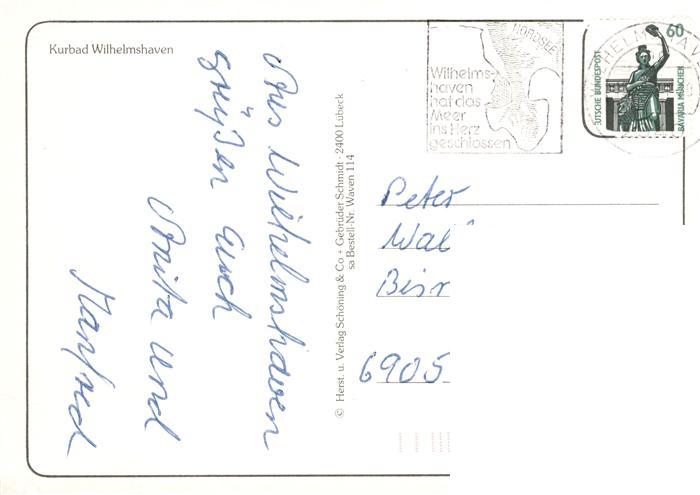 Kurbad Wilhelmshaven
Aus Wilhelmshaven
grüßen euch
Anita und
Manfred
© Herst. u. Verlag Schöning & Co + Gebrüder Schmidt · 2400 Lübeck
sa Bestell-Nr. Waven 114
NORDSEE
Wilhelms-
haven
hat das
Meer
ins Herz
geschlossen
60
DEUTSCHE BUNDESPOST
BAVARIA MÜNCHEN
Peter
Wal
Bisr
6905